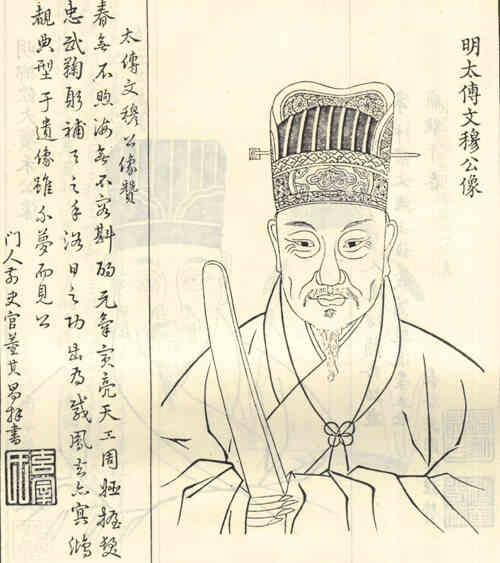 明太傅文穆公像
太傅文穆公像贊
春無不煦海無不容斟酌元氣寅亮天工周
忠鞠躬補天之手浴日之功出為威鳳去亦冥鴻
覩典型于遺像雖不夢而見公
門人前史官董其昌拜書